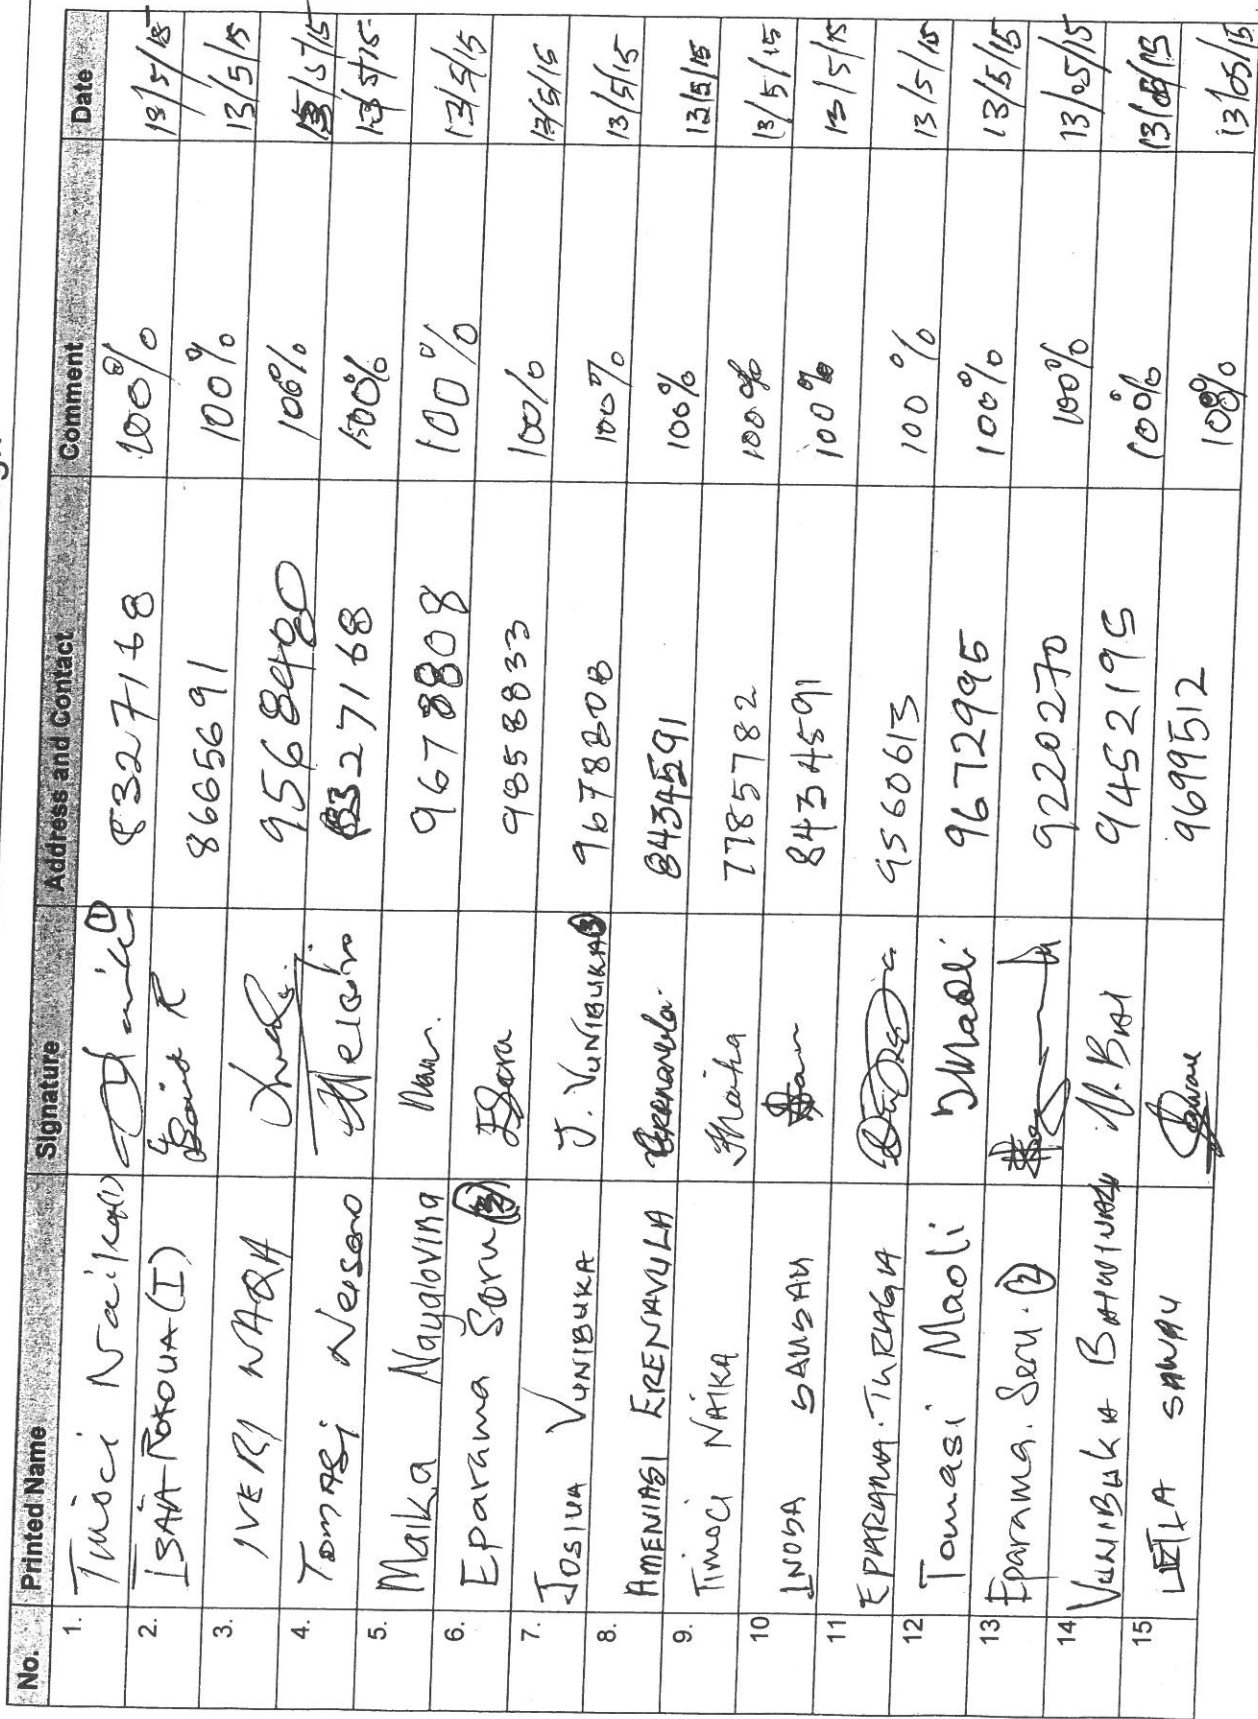 No. Printed Name Signature Address and Contact Comment Date
1. Timoci Naika(1) (1) 8327168 100% 13/5/15
2. ISAIA ROKOUA (I) 8665691 100% 13/5/15
3. IVERI NAQA 9568480 100% 13/5/15
4. TOMASI Neisano 8327168 100% 13/5/15
5. Maika Nayalovina 9678808 100% 13/5/15
6. Eparama Soru (3) 9858833 100% 13/5/15
7. JOSIUA VUNIBUKA J. VUNIBUKA (3) 9678808 100% 13/5/15
8. AMENIASI ERENAVULA 8434591 100% 13/5/15
9. Timoci NAIKA 7785782 100% 13/5/15
10 INOSA SAUSAU 8434591 100% 13/5/15
11 EPARAMA. TURAGA 9560613 100% 13/5/15
12 Tomasi Maoli J Maoli 9672995 100% 13/5/15
13 Eparama. Seru. (2) 9220270 100% 13/05/15
14 VUNIBUKA 9452195 100% 13/05/15
15 9699512 100% 13/05/15